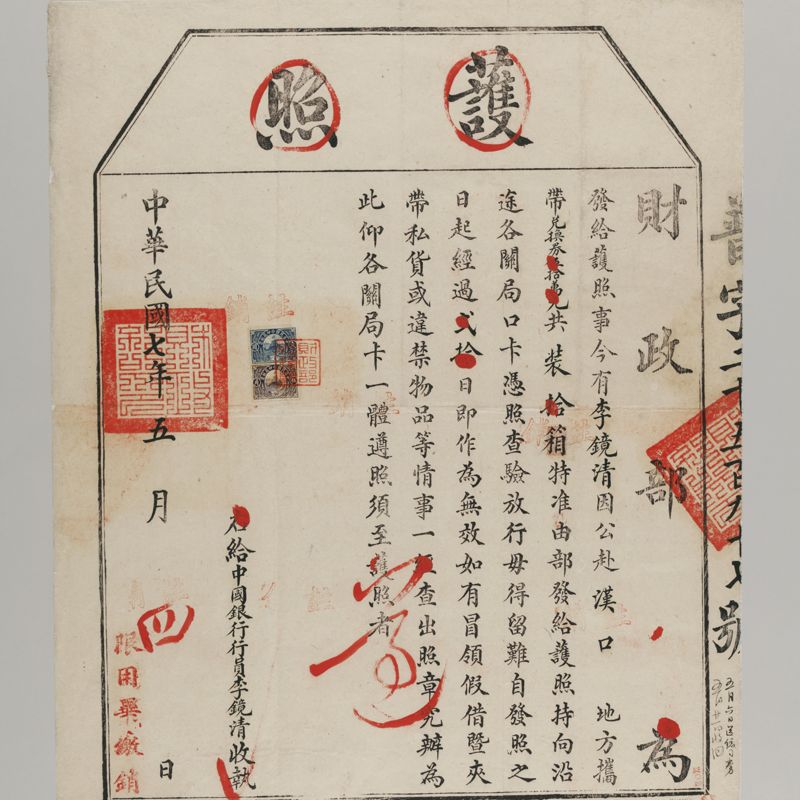 護照
財政部為
發給護照事今有李鏡清因公赴漢口地方攜
帶兌換券伍拾萬元共裝拾箱特准由部發給護照持向沿
途各關局口卡憑照查驗放行毋得留難自發照之
日起經過貳拾日即作為無效如有冒領假借暨夾
帶私貨或違禁物品等情事一經查出照章究辦為
此仰各關局卡一體遵照須至護照者
右給中國銀行行員李鏡清收執
中華民國七年五月四日
限用畢繳銷
財政部